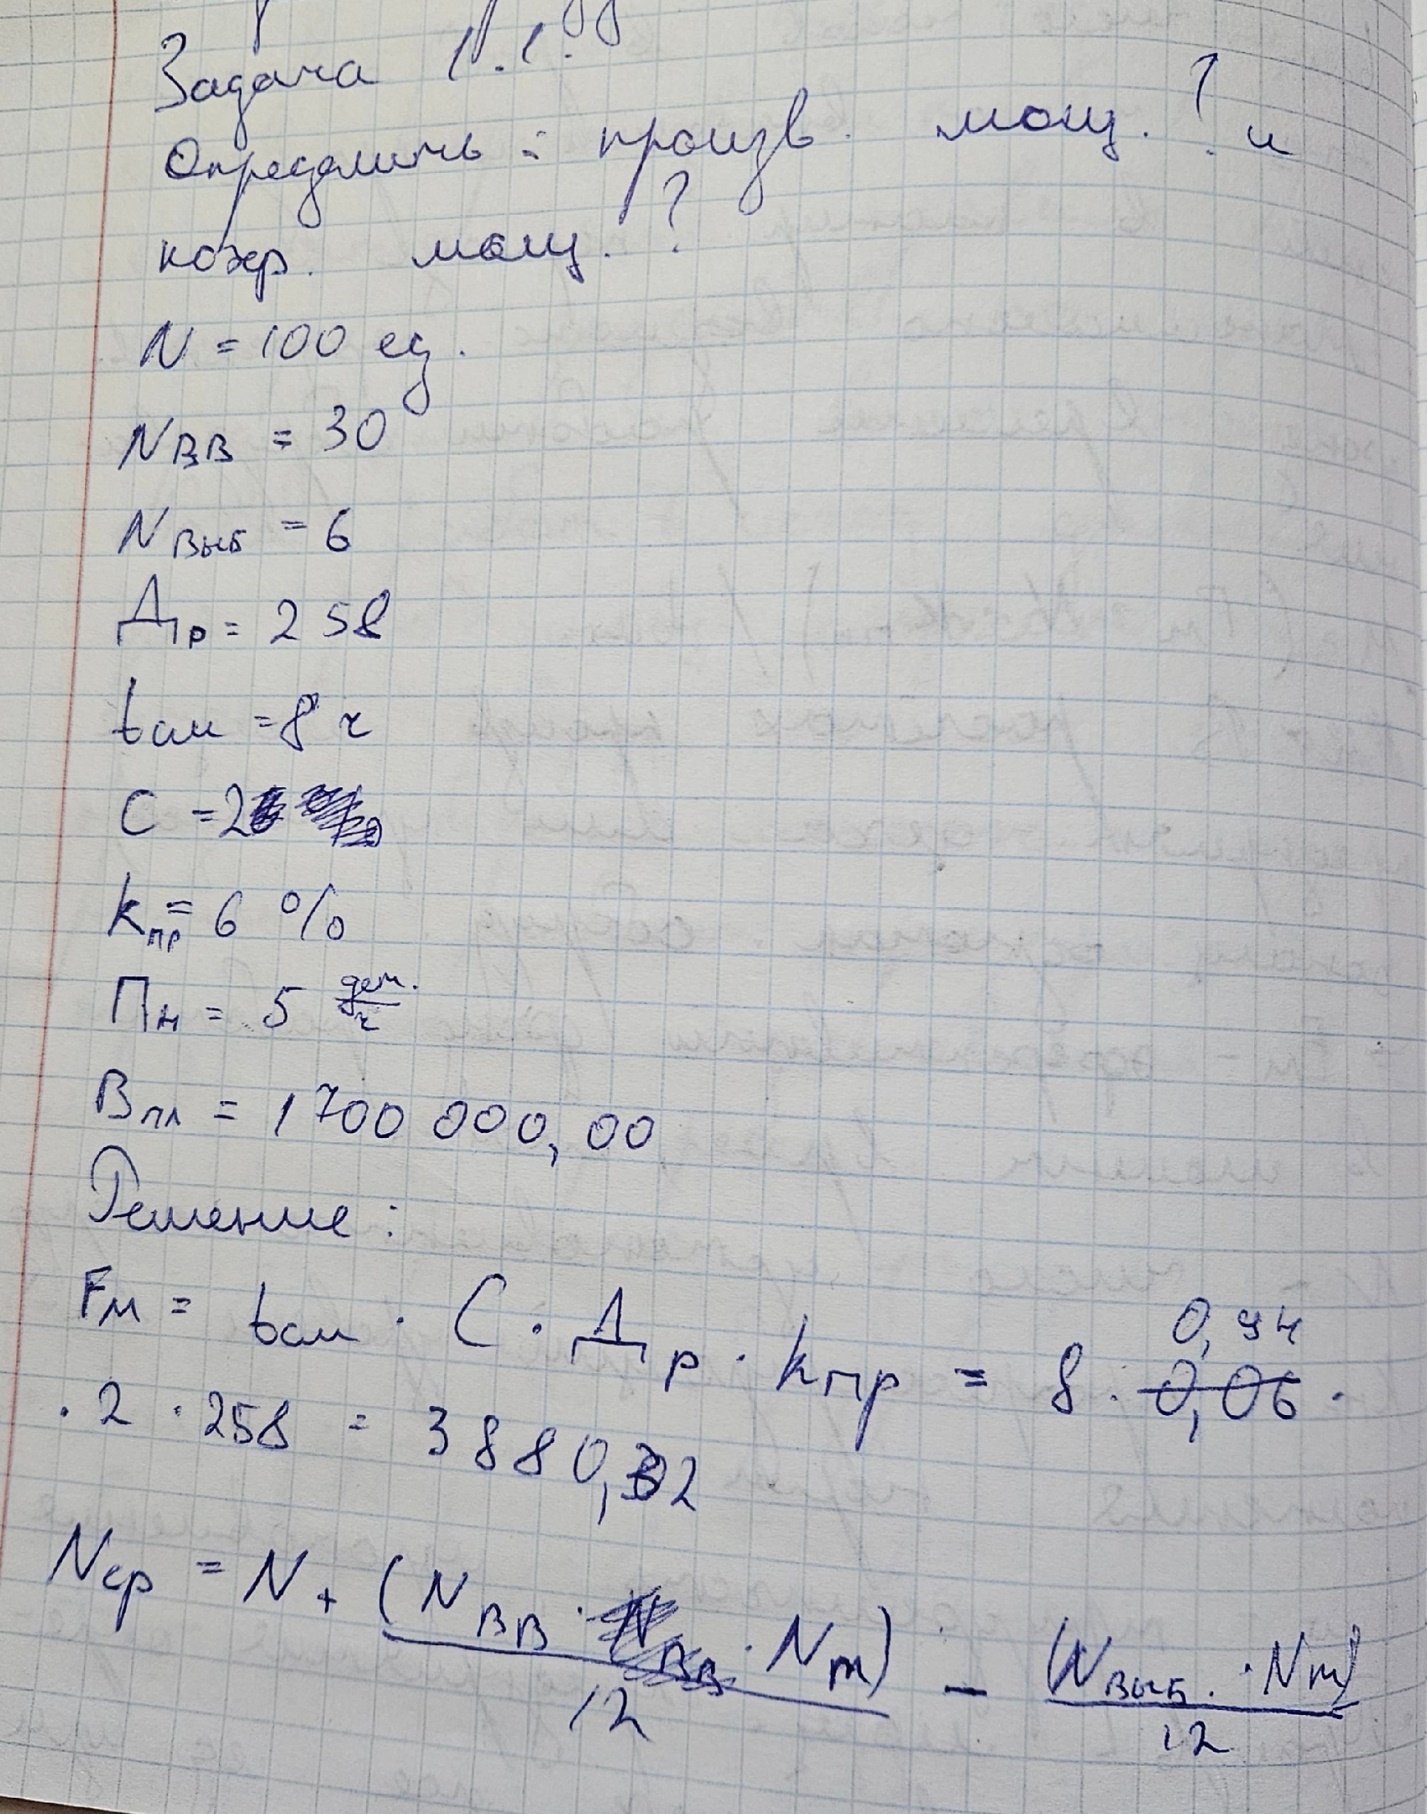 Задача 1.1.
Определить: произв. мощ.? и
коэф. мощ.?
N = 100 ед.
Nвв = 30
Nвыб = 6
Др = 258
tсм = 8 ч
C = 2
kпр = 6 %
Пн = 5 дет./ч
Впл = 1 700 000,00
Решение:
Fм = tсм · C · Др · kпр = 8 · 0,94 0,06 ·
· 2 · 258 = 3880,32
Nср = N + (Nвв · Nm)/12 - (Nвыб. · Nm)/12